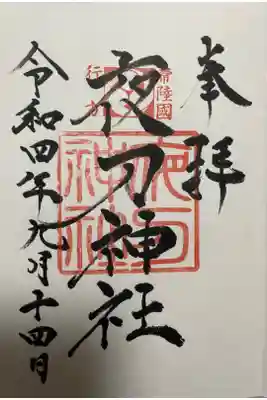 奉拝
常陸國
行方
夜刀神社
夜刀神社
令和四年九月十四日